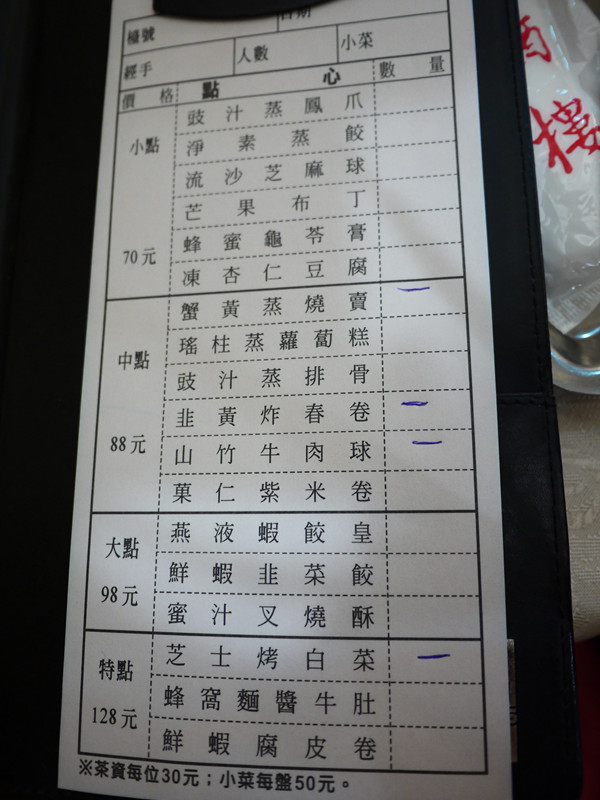 檯號 日期
經手 人數 小菜
價格 點心 數量
小點 70元
豉汁蒸鳳爪
淨素蒸餃
流沙芝麻球
芒果布丁
蜂蜜龜苓膏
凍杏仁豆腐
中點 88元
蟹黃蒸燒賣 一
瑤柱蒸蘿蔔糕
豉汁蒸排骨
韭黃炸春卷 一
山竹牛肉球 一
菓仁紫米卷
大點 98元
燕液蝦餃皇
鮮蝦韭菜餃
蜜汁叉燒酥
特點 128元
芝士烤白菜 一
蜂窩麵醬牛肚
鮮蝦腐皮卷
※茶資每位30元；小菜每盤50元。
酒樓